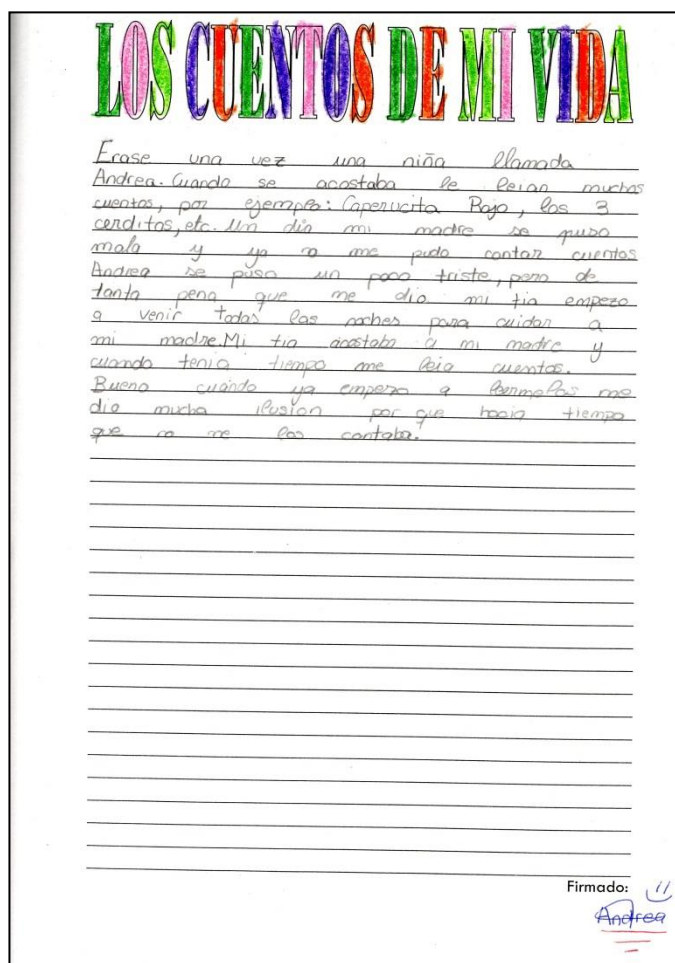 LOS CUENTOS DE MI VIDA
Erase una vez una niña llamada
Andrea. Cuando se acostaba le leian muchos
cuentos, por ejemplo: Caperucita Roja, los 3
cerditos, etc. Un dia mi madre se puso
mala y ya no me pudo contar cuentos
Andrea se puso un poco triste, pero de
tanta pena que me dio mi tia empezo
a venir todas las noches para cuidar a
mi madre. Mi tia acostaba a mi madre y
cuando tenia tiempo me leia cuentos.
Bueno cuándo ya empezo a leermelos me
dio mucha ilusion por que hacia tiempo
que no me los contaba.
Firmado:
Andrea